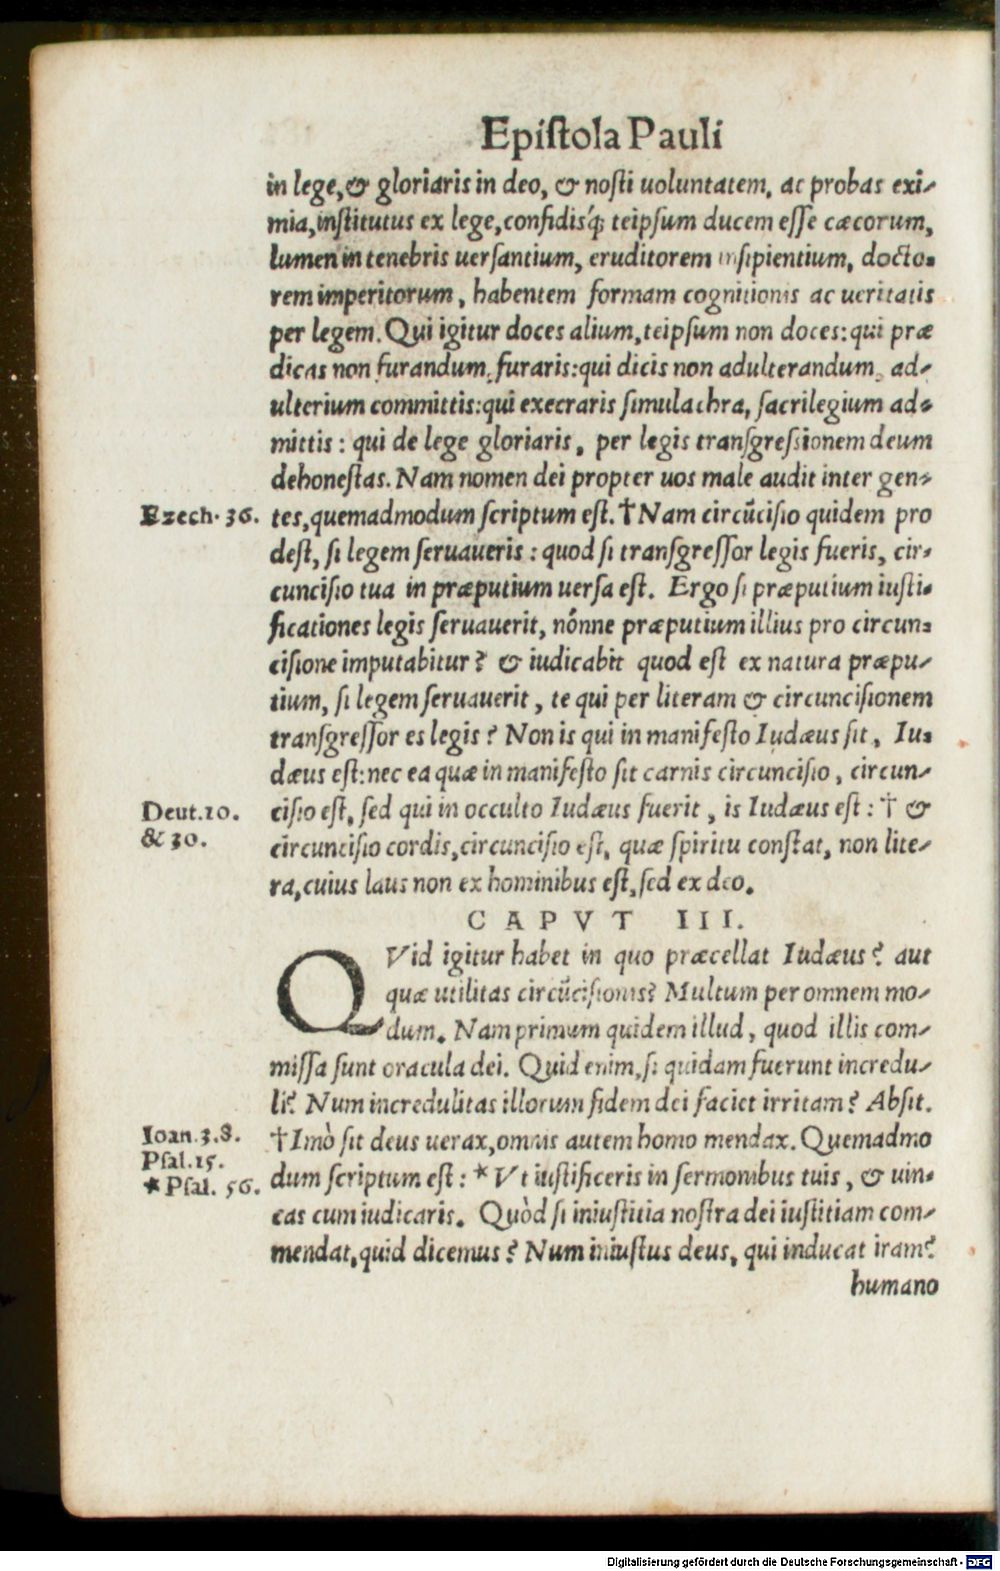 Epiſtola Pauli
in lege,& gloriaris in deo, & noſti uoluntatem, ac probas exi-
mia,inſtitutus ex lege,confidisq́ꝫ teipſum ducem eſſe cæcorum,
lumen in tenebris uerſantium, eruditorem inſipientium, docto-
rem imperitorum, habentem formam cognitionis ac ueritatis
per legem. Qui igitur doces alium,teipſum non doces:qui præ
dicas non furandum,furaris:qui dicis non adulterandum, ad-
ulterium committis:qui execraris ſimulachra, ſacrilegium ad-
mittis: qui de lege gloriaris, per legis tranſgreſsionem deum
dehoneſtas. Nam nomen dei propter uos male audit inter gen-
Ezech. 36. tes,quemadmodum ſcriptum eſt. †Nam circũciſio quidem pro
deſt, ſi legem ſeruaueris: quod ſi tranſgreſſor legis fueris, cir-
cunciſio tua in præputium uerſa eſt. Ergo ſi præputium iuſti-
ficationes legis ſeruauerit, nónne præputium illius pro circun-
ciſione imputabitur? & iudicabit quod eſt ex natura præpu-
tium, ſi legem ſeruauerit, te qui per literam & circunciſionem
tranſgreſſor es legis? Non is qui in manifeſto Iudæus ſit, Iu-
dæus eſt:nec ea quæ in manifeſto ſit carnis circunciſio, circun-
Deut.10. ciſio eſt, ſed qui in occulto Iudæus fuerit, is Iudæus eſt: † &
& 30. circunciſio cordis,circunciſio eſt, quæ ſpiritu conſtat, non lite-
ra,cuius laus non ex hominibus eſt,ſed ex deo.
CAPVT III.
QVid igitur habet in quo præcellat Iudæus? aut
quæ utilitas circũciſionis? Multum per omnem mo-
dum. Nam primum quidem illud, quod illis com-
miſſa ſunt oracula dei. Quid enim,ſi quidam fuerunt incredu-
li? Num incredulitas illorum fidem dei faciet irritam? Abſit.
Ioan.3.8. †Imò ſit deus uerax,omnis autem homo mendax. Quemadmo
Pſal.15.
*Pſal. 56. dum ſcriptum eſt: *Vt iuſtificeris in ſermonibus tuis, & uin-
cas cum iudicaris. Quòd ſi iniuſtitia noſtra dei iuſtitiam com-
mendat,quid dicemus? Num iniuſtus deus, qui inducat iram?
humano
Digitalisierung gefördert durch die Deutsche Forschungsgemeinschaft - DFG